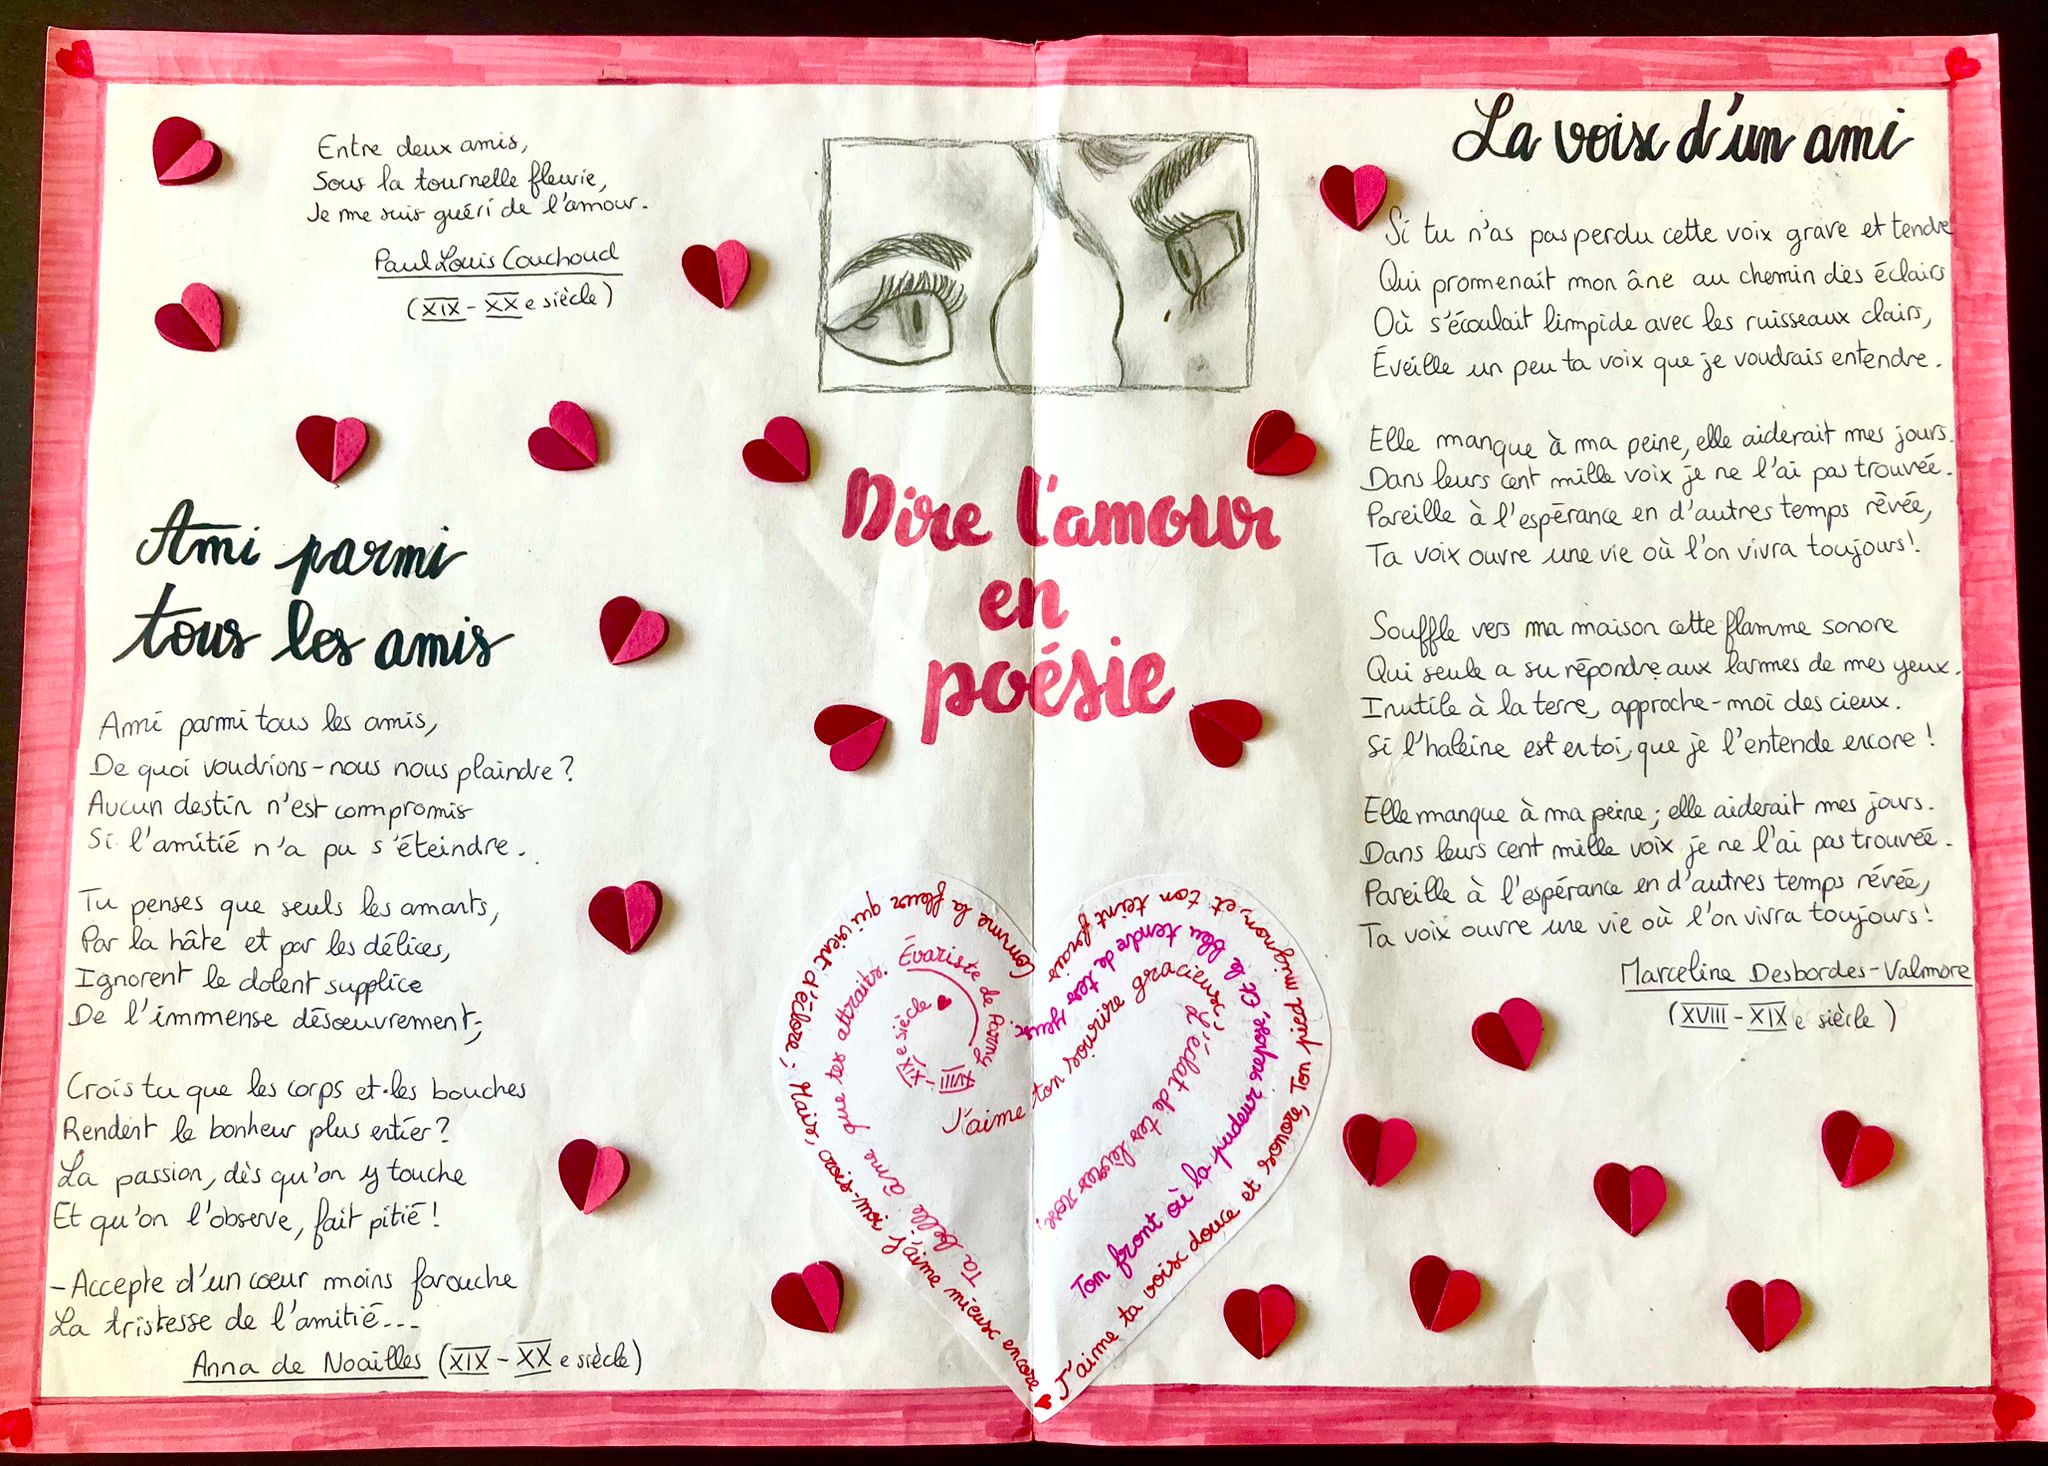 Entre deux amis,
Sous la tournelle fleurie,
Je me suis guéri de l'amour.
Paul Louis Couchoud
(XIX - XX e siècle)
Ami parmi
tous les amis
Ami parmi tous les amis,
De quoi voudrions-nous nous plaindre ?
Aucun destin n'est compromis
Si l'amitié n'a pu s'éteindre.
Tu penses que seuls les amants,
Par la hâte et par les délices,
Ignorent le dolent supplice
De l'immense désœuvrement ;
Crois tu que les corps et les bouches
Rendent le bonheur plus entier ?
La passion, dès qu'on y touche
Et qu'on l'observe, fait pitié !
- Accepte d'un cœur moins farouche
La tristesse de l'amitié...
Anna de Noailles (XIX - XX e siècle)
Dire l'amour
en
poésie
J'aime ton sourire gracieux,
L'éclat de tes lèvres rose,
Ton front où la pudeur repose, Et le bleu tendre de tes yeux.
J'aime ta voix douce et sonore, Ton pied mignon, et ton teint frais
Comme la fleur qui vient d'éclore ; Mais, crois-moi j'aime mieux encore
Ta belle âme que tes attraits.
Évariste de Parny
XVIII - XIX e siècle
La voix d'un ami
Si tu n'as pas perdu cette voix grave et tendre
Qui promenait mon âne au chemin des éclairs
Où s'écoulait limpide avec les ruisseaux clairs,
Éveille un peu ta voix que je voudrais entendre.
Elle manque à ma peine, elle aiderait mes jours.
Dans leurs cent mille voix je ne l'ai pas trouvée.
Pareille à l'espérance en d'autres temps rêvée,
Ta voix ouvre une vie où l'on vivra toujours !
Souffle vers ma maison cette flamme sonore
Qui seule a su répondre aux larmes de mes yeux.
Inutile à la terre, approche-moi des cieux.
Si l'haleine est en toi, que je l'entende encore !
Elle manque à ma peine ; elle aiderait mes jours.
Dans leurs cent mille voix je ne l'ai pas trouvée.
Pareille à l'espérance en d'autres temps rêvée,
Ta voix ouvre une vie où l'on vivra toujours !
Marceline Desbordes-Valmore
(XVIII - XIX e siècle)